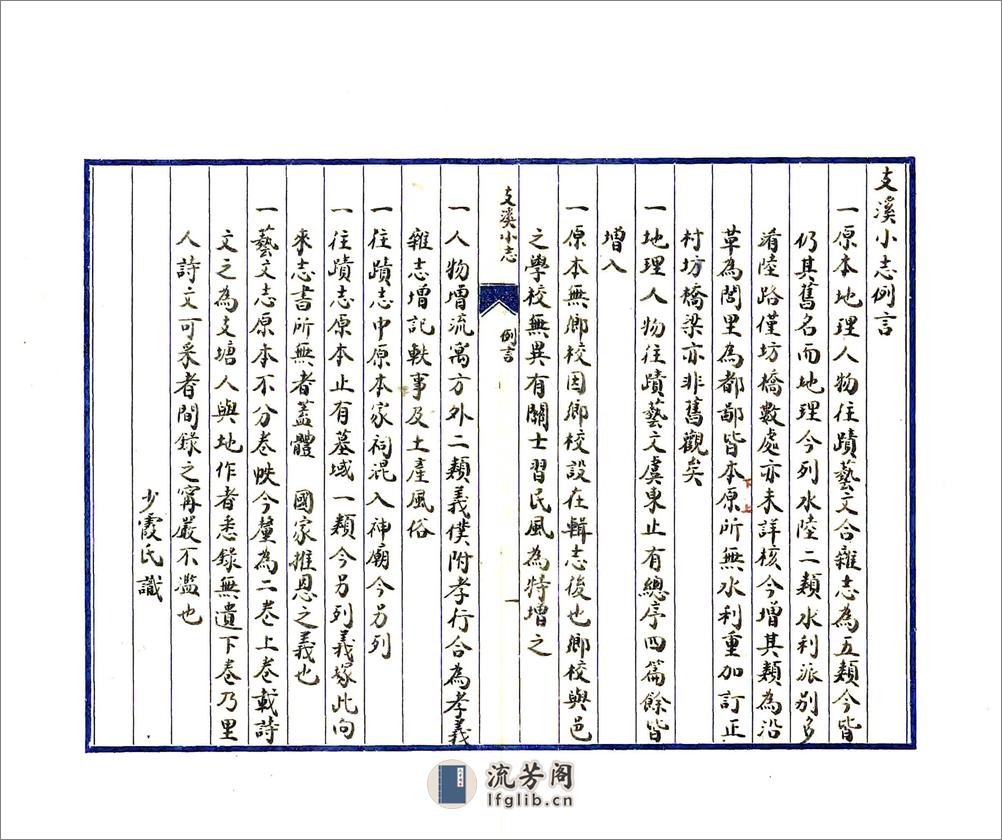 支溪小志例言
一原本地理人物往蹟藝文合雜志為五類今皆
仍其舊名而地理今列水陸二類水利派别多
淆陸路僅坊橋數處亦未詳核今增其類為沿
革為閭里為都鄙皆本原所無水利重加訂正
下 上
村坊橋梁亦非舊觀矣
一地理人物往蹟藝文虞東止有總序四篇餘皆
增入
一原本無鄉校因鄉校設在輯志後也鄉校與邑
之學校無異有關士習民風為特增之
支溪小志 例言 一
一人物增流寓方外二類義僕附孝行合為孝義
雜志增記軼事及土產風俗
一往蹟志中原本家祠混入神廟今另列
一往蹟志原本止有墓域一類今另列義塚此向
來志書所無者蓋體 國家推恩之義也
一藝文志原本不分卷帙今釐為二卷上卷載詩
文之為支塘人與地作者悉錄無遺下卷乃里
人詩文可采者間錄之寗嚴不濫也
少霞氏識
流芳阁
lfglib.cn